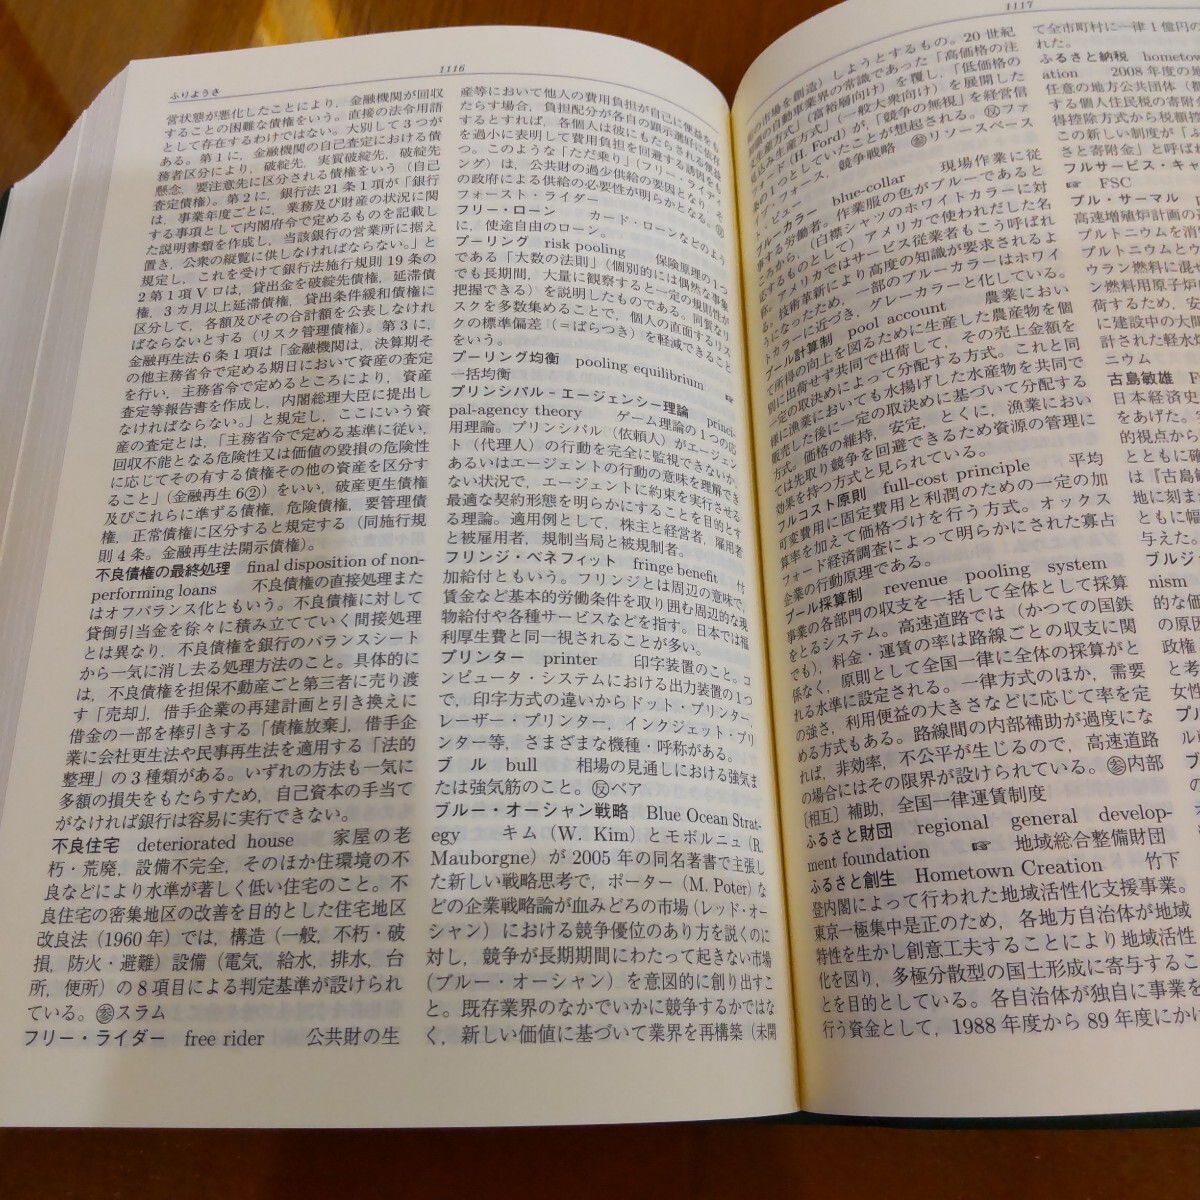 1116
ふりようさ
営状態が悪化したことにより，金融機関が回収
することの困難な債権をいう。直接の法令用語
として存在するわけではない。大別して3つが
ある。第1に，金融機関の自己査定における債
務者区分により，破綻先，実質破綻先，破綻先
懸念，要注意先に区分される債権をいう（自己
査定債権）。第2に，銀行法21条1項が「銀行
は，事業年度ごとに，業務及び財産の状況に関
する事項として内閣府令で定めるものを記載し
た説明書類を作成し，当該銀行の営業所に据え
置き，公衆の縦覧に供しなければならない。」と
規定し，これを受けて銀行法施行規則19条の
2第1項Ⅴロは，貸出金を破綻先債権，延滞債
権，3カ月以上延滞債権，貸出条件緩和債権に
区分して，各額及びその合計額を公表しなけれ
ばならないとする（リスク管理債権）。第3に，
金融再生法6条1項は「金融機関は，決算期そ
の他主務省令で定める期日において資産の査定
を行い，主務省令で定めるところにより，資産
査定等報告書を作成し，内閣総理大臣に提出し
なければならない。」と規定し，ここにいう資
産の査定とは，「主務省令で定める基準に従い，
回収不能となる危険性又は価値の毀損の危険性
に応じてその有する債権その他の資産を区分す
ること」（金融再生6②）をいい，破産更生債権
及びこれらに準ずる債権，危険債権，要管理債
権，正常債権に区分すると規定する（同施行規
則4条。金融再生法開示債権）。
不良債権の最終処理 final disposition of non-
performing loans 不良債権の直接処理また
はオフバランス化ともいう。不良債権に対して
貸倒引当金を徐々に積み立てていく間接処理
とは異なり，不良債権を銀行のバランスシート
から一気に消し去る処理方法のこと。具体的に
は，不良債権を担保不動産ごと第三者に売り渡
す「売却」，借手企業の再建計画と引き換えに
借金の一部を棒引きする「債権放棄」，借手企
業に会社更生法や民事再生法を適用する「法的
整理」の3種類がある。いずれの方法も一気に
多額の損失をもたらすため，自己資本の手当て
がなければ銀行は容易に実行できない。
不良住宅 deteriorated house 家屋の老
朽・荒廃，設備不完全，そのほか住環境の不
良などにより水準が著しく低い住宅のこと。不
良住宅の密集地区の改善を目的とした住宅地区
改良法（1960年）では，構造（一般，不朽・破
損，防火・避難）設備（電気，給水，排水，台
所，便所）の8項目による判定基準が設けられ
ている。㊂スラム
フリー・ライダー free rider 公共財の生
産等において他人の費用負担が自己に便益をも
たらす場合，負担配分が各自の顕示選好に依存
するとすれば，各個人は彼にもたらされる便益
を過小に表明して費用負担を回避する誘因をも
つ。このような「ただ乗り」（フリー・ライディ
ング）は，公共財の過少供給の要因となり，そ
の政府による供給の必要性が明らかとなる。
フォースト・ライダー
フリー・ローン カード・ローンなどのよう
に，使途自由のローン。
プーリング risk pooling 保険原理の1つ
である「大数の法則」（個別的には偶然な事象
でも長期間，大量に観察すると一定の規則性が
把握できる）を説明したものである。同質なリ
スクを多数集めることで，個人の直面するリス
クの標準偏差（＝ばらつき）を軽減できること
をいう。
プーリング均衡 pooling equilibrium ☞
一括均衡
プリンシパル-エージェンシー理論 princi-
pal-agency theory ゲーム理論の1つの応
用理論。プリンシパル（依頼人）がエージェン
ト（代理人）の行動を完全に監視できないか，
あるいはエージェントの行動の意味を理解でき
ない状況で，エージェントに約束を実行させる
最適な契約形態を明らかにすることを目的とす
る理論。適用例として，株主と経営者，雇用者
と被雇用者，規制当局と被規制者。
フリンジ・ベネフィット fringe benefit 付
加給付ともいう。フリンジとは周辺の意味で，
賃金など基本的労働条件を取り囲む周辺的な現
物給付や各種サービスなどを指す。日本では福
利厚生費と同一視されることが多い。
プリンター printer 印字装置のこと。コ
ンピュータ・システムにおける出力装置の1つ
で，印字方式の違いからドット・プリンター，
レーザー・プリンター，インクジェット・プリ
ンター等，さまざまな機種・呼称がある。
ブル bull 相場の見通しにおける強気ま
たは強気筋のこと。反ベア
ブルー・オーシャン戦略 Blue Ocean Strat-
egy キム（W. Kim）とモボルニュ（R.
Mauborgne）が2005年の同名著書で主張し
た新しい戦略思考で，ポーター（M. Poter）な
どの企業戦略論が血みどろの市場（レッド・オー
シャン）における競争優位のあり方を説くのに
対し，競争が長期期間にわたって起きない市場
（ブルー・オーシャン）を意図的に創り出すこ
と。既存業界のなかでいかに競争するかではな
く，新しい価値に基づいて業界を再構築（未開
1117
市場を創造）しようとするもの。20世紀
自動車業界の常識であった「高価格の注
文生産方式」（富裕層向け）を覆し，「低価格の
見込み生産方式」（一般大衆向け）を展開した
フォード（H. Ford）が，「競争の無視」を経営信
の1つとしていたことが想起される。反ファ
イブ・フォース，競争戦略 参リソースベース
ト・ビュー
ブルーカラー blue-collar 現場作業に従
事する労働者。作業服の色がブルーであると
ころから，（白襟シャツのホワイトカラーに対
応するものとして）アメリカで使われだした名
称。アメリカではサービス従業者もこう呼ばれ
る。技術革新により高度の知識が要求されるよ
うになったため，一部のブルーカラーはホワイ
トカラーに近づき，グレーカラーと化している。
プール計算制 pool account 農業におい
て所得の向上を図るために生産した農産物を個
別に出荷せず共同で出荷して，その売上金額を
一定の取決めによって分配する方式。これと同
様に漁業においても水揚げした水産物を共同で
販売した後に一定の取決めに基づいて分配する
方式。価格の維持，安定，とくに，漁業におい
ては先取り競争を回避できるため資源の管理に
効果を持つ方式と見られている。
フルコスト原則 full-cost principle 平均
可変費用に固定費用と利潤のための一定の加
算率を加えて価格づけを行う方式。オックス
フォード経済調査によって明らかにされた寡占
企業の行動原理である。
プール採算制 revenue pooling system
事業の各部門の収支を一括して全体として採算
をとるシステム。高速道路では（かつての国鉄
でも），料金・運賃の率は路線ごとの収支に関
係なく，原則として全国一律に全体の採算がと
れる水準に設定される。一律方式のほか，需要
の強さ，利用便益の大きさなどに応じて率を定
める方式もある。路線間の内部補助が過度にな
れば，非効率，不公平が生じるので，高速道路
の場合にはその限界が設けられている。参内部
〔相互〕補助，全国一律運賃制度
ふるさと財団 regional general develop-
ment foundation ☞ 地域総合整備財団
ふるさと創生 Hometown Creation 竹下
登内閣によって行われた地域活性化支援事業。
東京一極集中是正のため，各地方自治体が地域
特性を生かし創意工夫することにより地域活性
化を図り，多極分散型の国土形成に寄与するこ
とを目的としている。各自治体が独自に事業を
行う資金として，1988年度から89年度にか
て全市町村に一律1億円の
れた。
ふるさと納税 hometow
ation 2008年度の地
任意の地方公共団体（都
する個人住民税の寄附
得控除方式から税額控
この新しい制度が「ふ
さと寄附金」と呼ばれ
フルサービス・キャ
☞ FSC
プル・サーマル p
高速増殖炉計画の
プルトニウムを消
プルトニウムとウ
ウラン燃料に混
ン燃料用原子炉
荷するため，安
に建設中の大間
計された軽水炉
ニウム
古島敏雄 F
日本経済史
をあげた。
的視点から
とともに確
は『古島敏
地に刻ま
ともに幅
与えた。
ブルジ
nism
的な価
の原因
政権
と考
女性